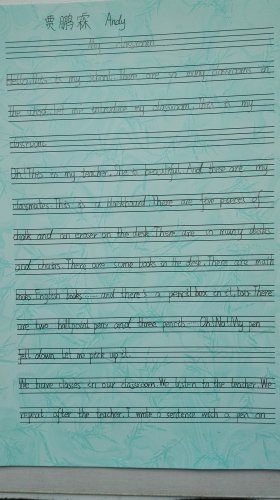 贾鹏霖 Andy
My classroom
Hello, this is my school. There are so many classrooms in
the school. Let me introduce my classroom. This is my
classroom.
Oh! This is my teacher. She is beautiful. And these are my
classmates. This is a blackboard. There are few pieces of
chalk and an eraser on the desk. There are so many desks
and chairs. There are some books in the desk. There are math
books, English books …… and there's a pencil box in it, too. There
are two ballpoint pens and three pencils …… Oh! No! My pen
fell down. Let me pick up it.
We have classes in our classroom. We listen to the teacher. We
repeat after the teacher. I write a sentence with a pen on